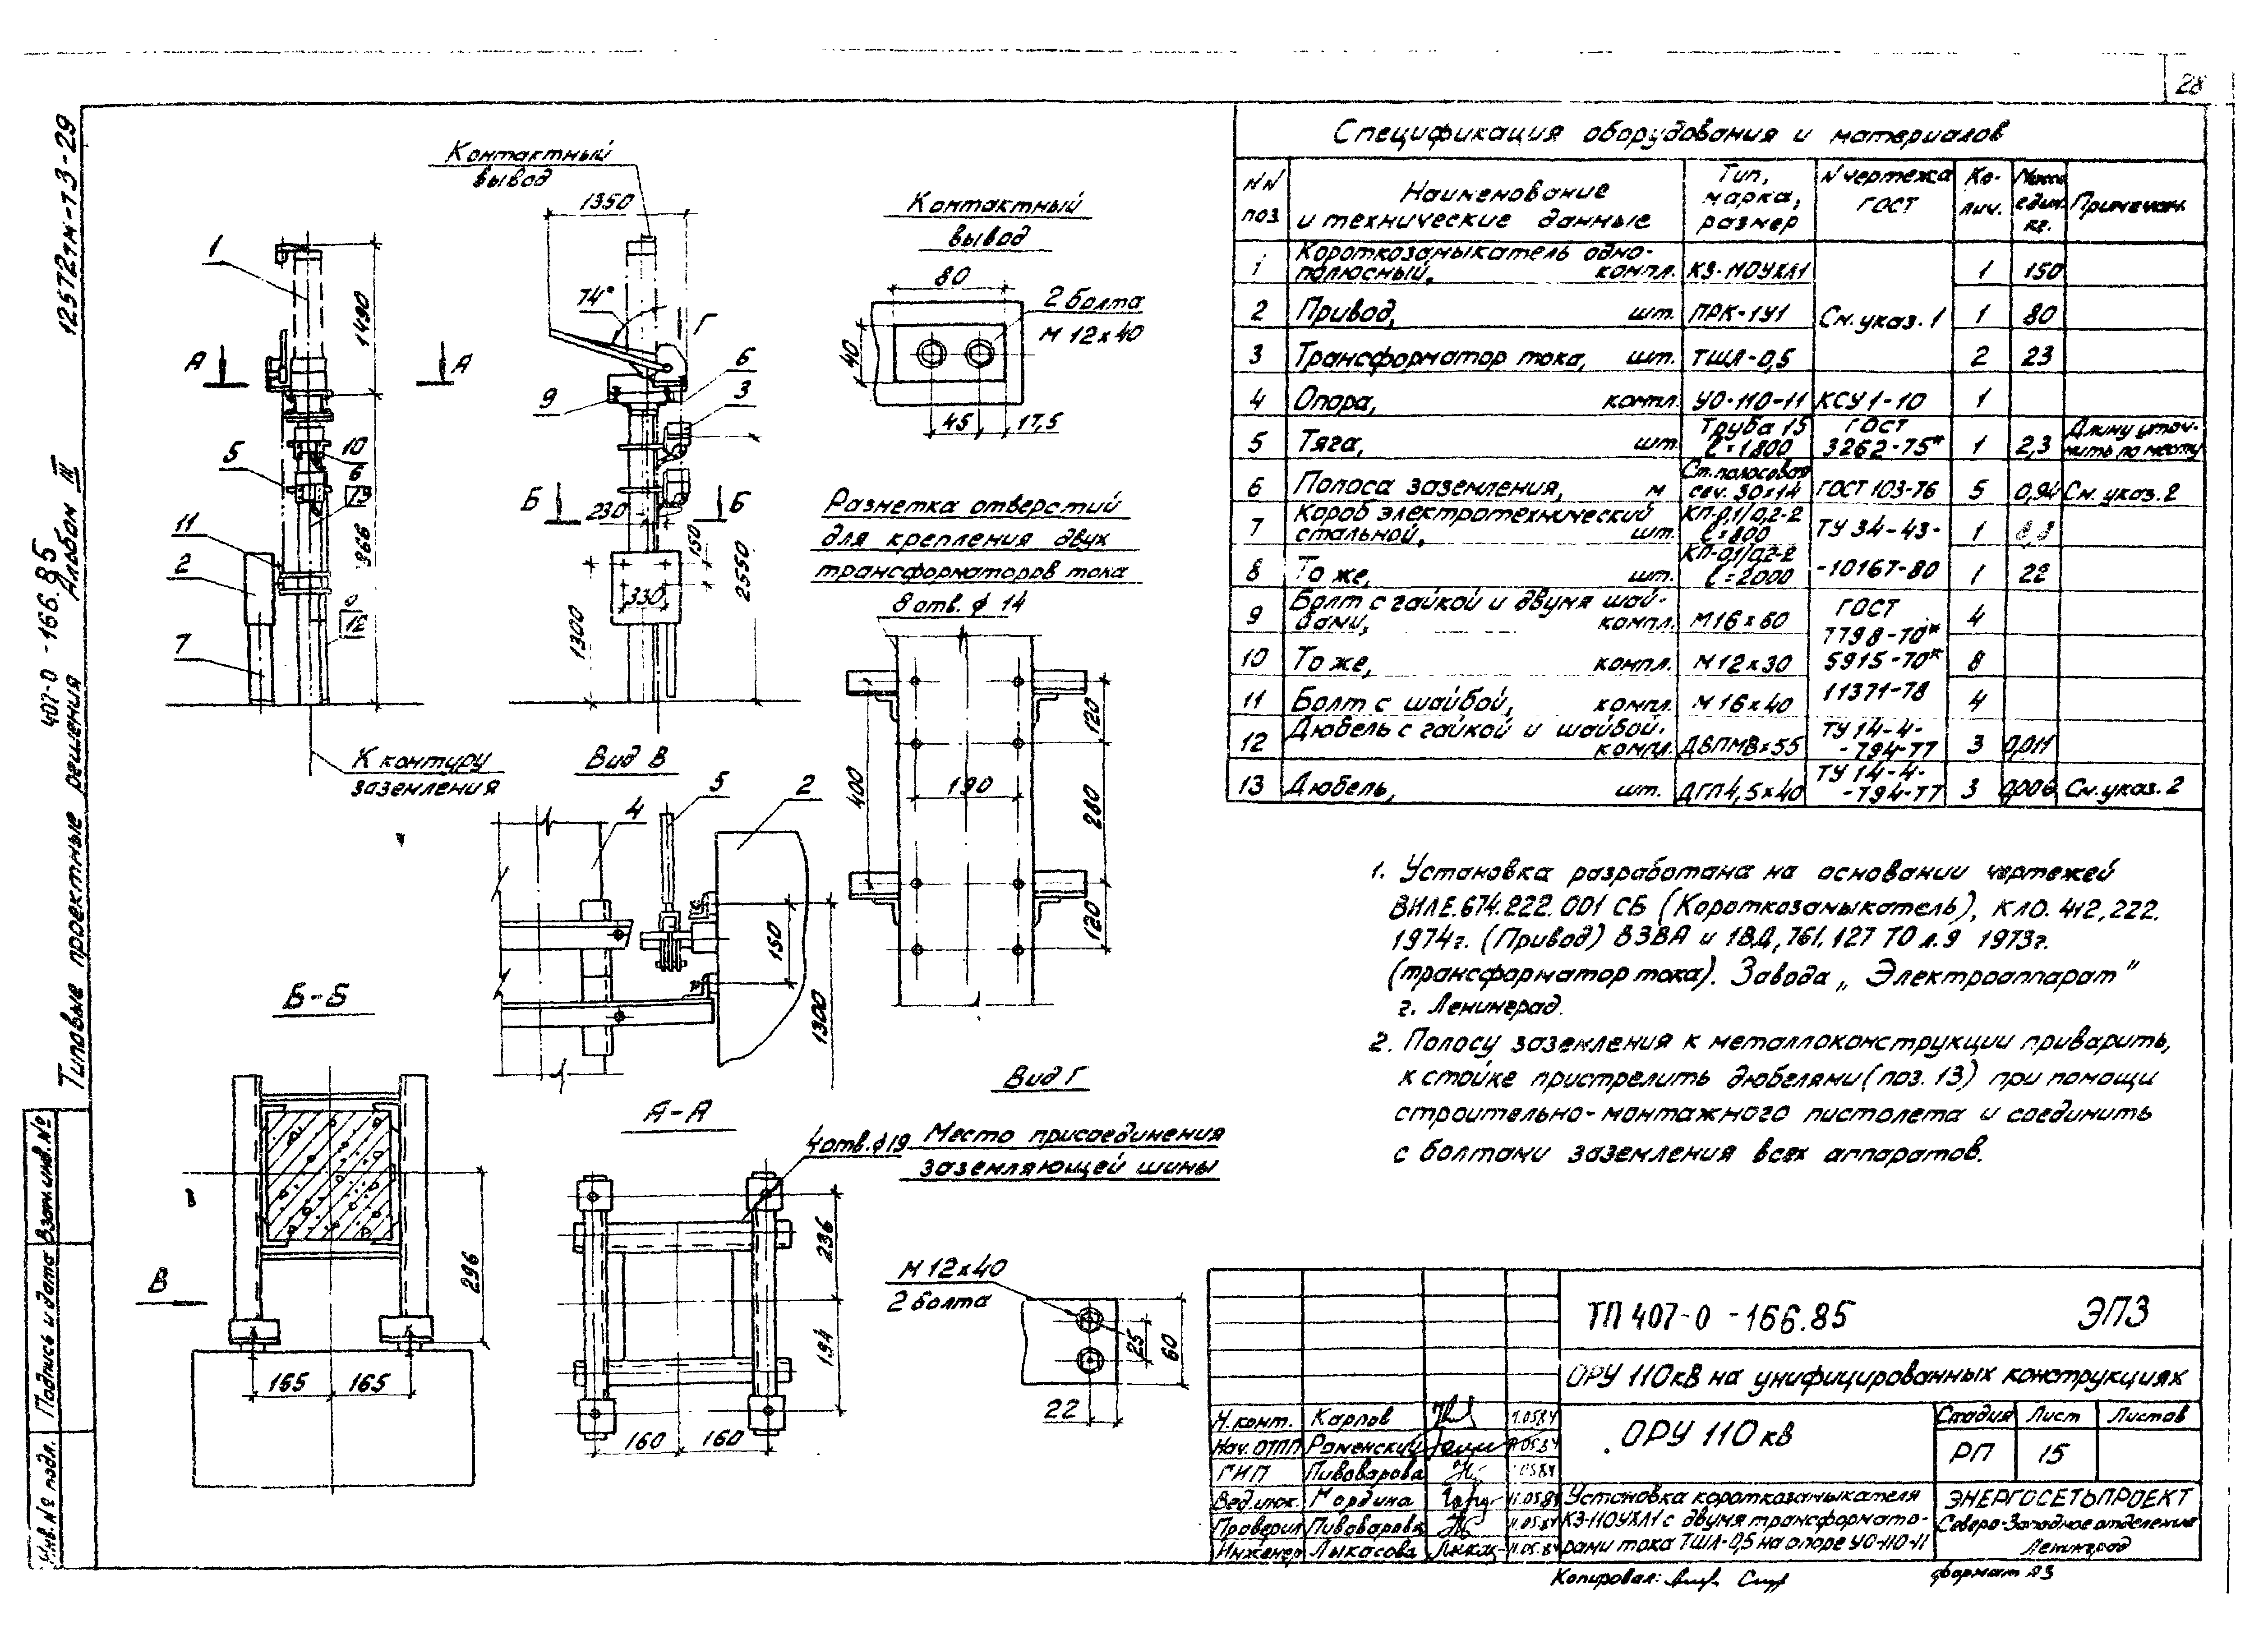 28
12572тм-т3-29
407-0-166.85
Типовые проектные решения Альбом III
Взам.инв.№
Подпись и дата
Инв.№ подл.
Контактный
вывод
1350
74°
Г
1
1490
А
А
9
6
3
5
10
6
13
11
2
7
966
Б
Б
230
150
330
1300
2550
К контуру
заземления
Контактный
вывод
80
2 болта
М 12х40
40
45
17,5
Разметка отверстий
для крепления двух
трансформаторов тока
8 отв. ф 14
400
190
120
280
120
Вид В
4
5
2
150
1300
Б-Б
В
296
165
165
А-А
4отв.ф19
236
194
160
160
Вид Г
Место присоединения
заземляющей шины
М 12х40
2 болта
25
60
22
Спецификация оборудования и материалов
NN поз | Наименование и технические данные | Тип, марка, размер | N чертежа ГОСТ | Ко-лич. | Масса един. кг. | Примечан.
1 Короткозамыкатель одно-
полюсный, компл. 1 150
2 Привод, шт. ПРК-1У1 См. указ. 1 1 80
3 Трансформатор тока, шт. ТШЛ-0,5 2 23
4 Опора, компл. УО-110-11 КСУ1-10 1
5 Тяга, шт. Труба 15 ℓ=1800 ГОСТ 3262-75* 1 2,3 Длину уточ-
нить по месту
6 Полоса заземления, м Ст. полосовая ГОСТ 103-76 5 0,94 См. указ. 2
7 Короб электротехнический
стальной, шт. КП-0,1/0,2-2 ℓ=800 ТУ 34-43- 1
8 То же, шт. КП-0,1/0,2-2 ℓ=2000 -10167-80 1 22
9 Болт с гайкой и двумя шай-
бами, компл. М16х60 ГОСТ 7798-70* 4
10 То же, компл. М12х30 5915-70* 8
11 Болт с шайбой, компл. М16х40 11371-78 4
12 Дюбель с гайкой и шайбой.
компл. ДВПМ8х55 ТУ 14-4-
-794-77 3 0,011
13 Дюбель, шт. ДГП4,5х40 ТУ 14-4-
-794-77 3 0,006 См. указ. 2
1. Установка разработана на основании чертежей
ВИЛЕ.674.222.001 СБ (Короткозамыкатель), КЛО.412,222.
1974г. (Привод) ВЗВА и 1ВД,761.127 ТО л.9 1973г.
(трансформатор тока). Завода „Электроаппарат"
г. Ленинград.
2. Полосу заземления к металлоконструкции приварить,
к стойке пристрелить дюбелями (поз. 13) при помощи
строительно-монтажного пистолета и соединить
с болтами заземления всех аппаратов.
ТП 407-0-166.85 ЭПЗ
ОРУ 110кВ на унифицированных конструкциях
ОРУ 110 кВ
Стадия Лист Листов
РП 15
Н.конт. Карпов
Нач.ОТПП Раменский
ГИП Пивоварова
Вед.инж. Мордина 11.05.84
Проверил Пивоварова 11.05.84
Инженер Лыкасова 11.05.84
Установка короткозамыкателя
КЗ-110УХЛ1 с двумя трансформато-
рами тока ТШЛ-0,5 на опоре УО-110-11
ЭНЕРГОСЕТЬПРОЕКТ
Северо-Западное отделение
Ленинград
Копировал:
формат А3